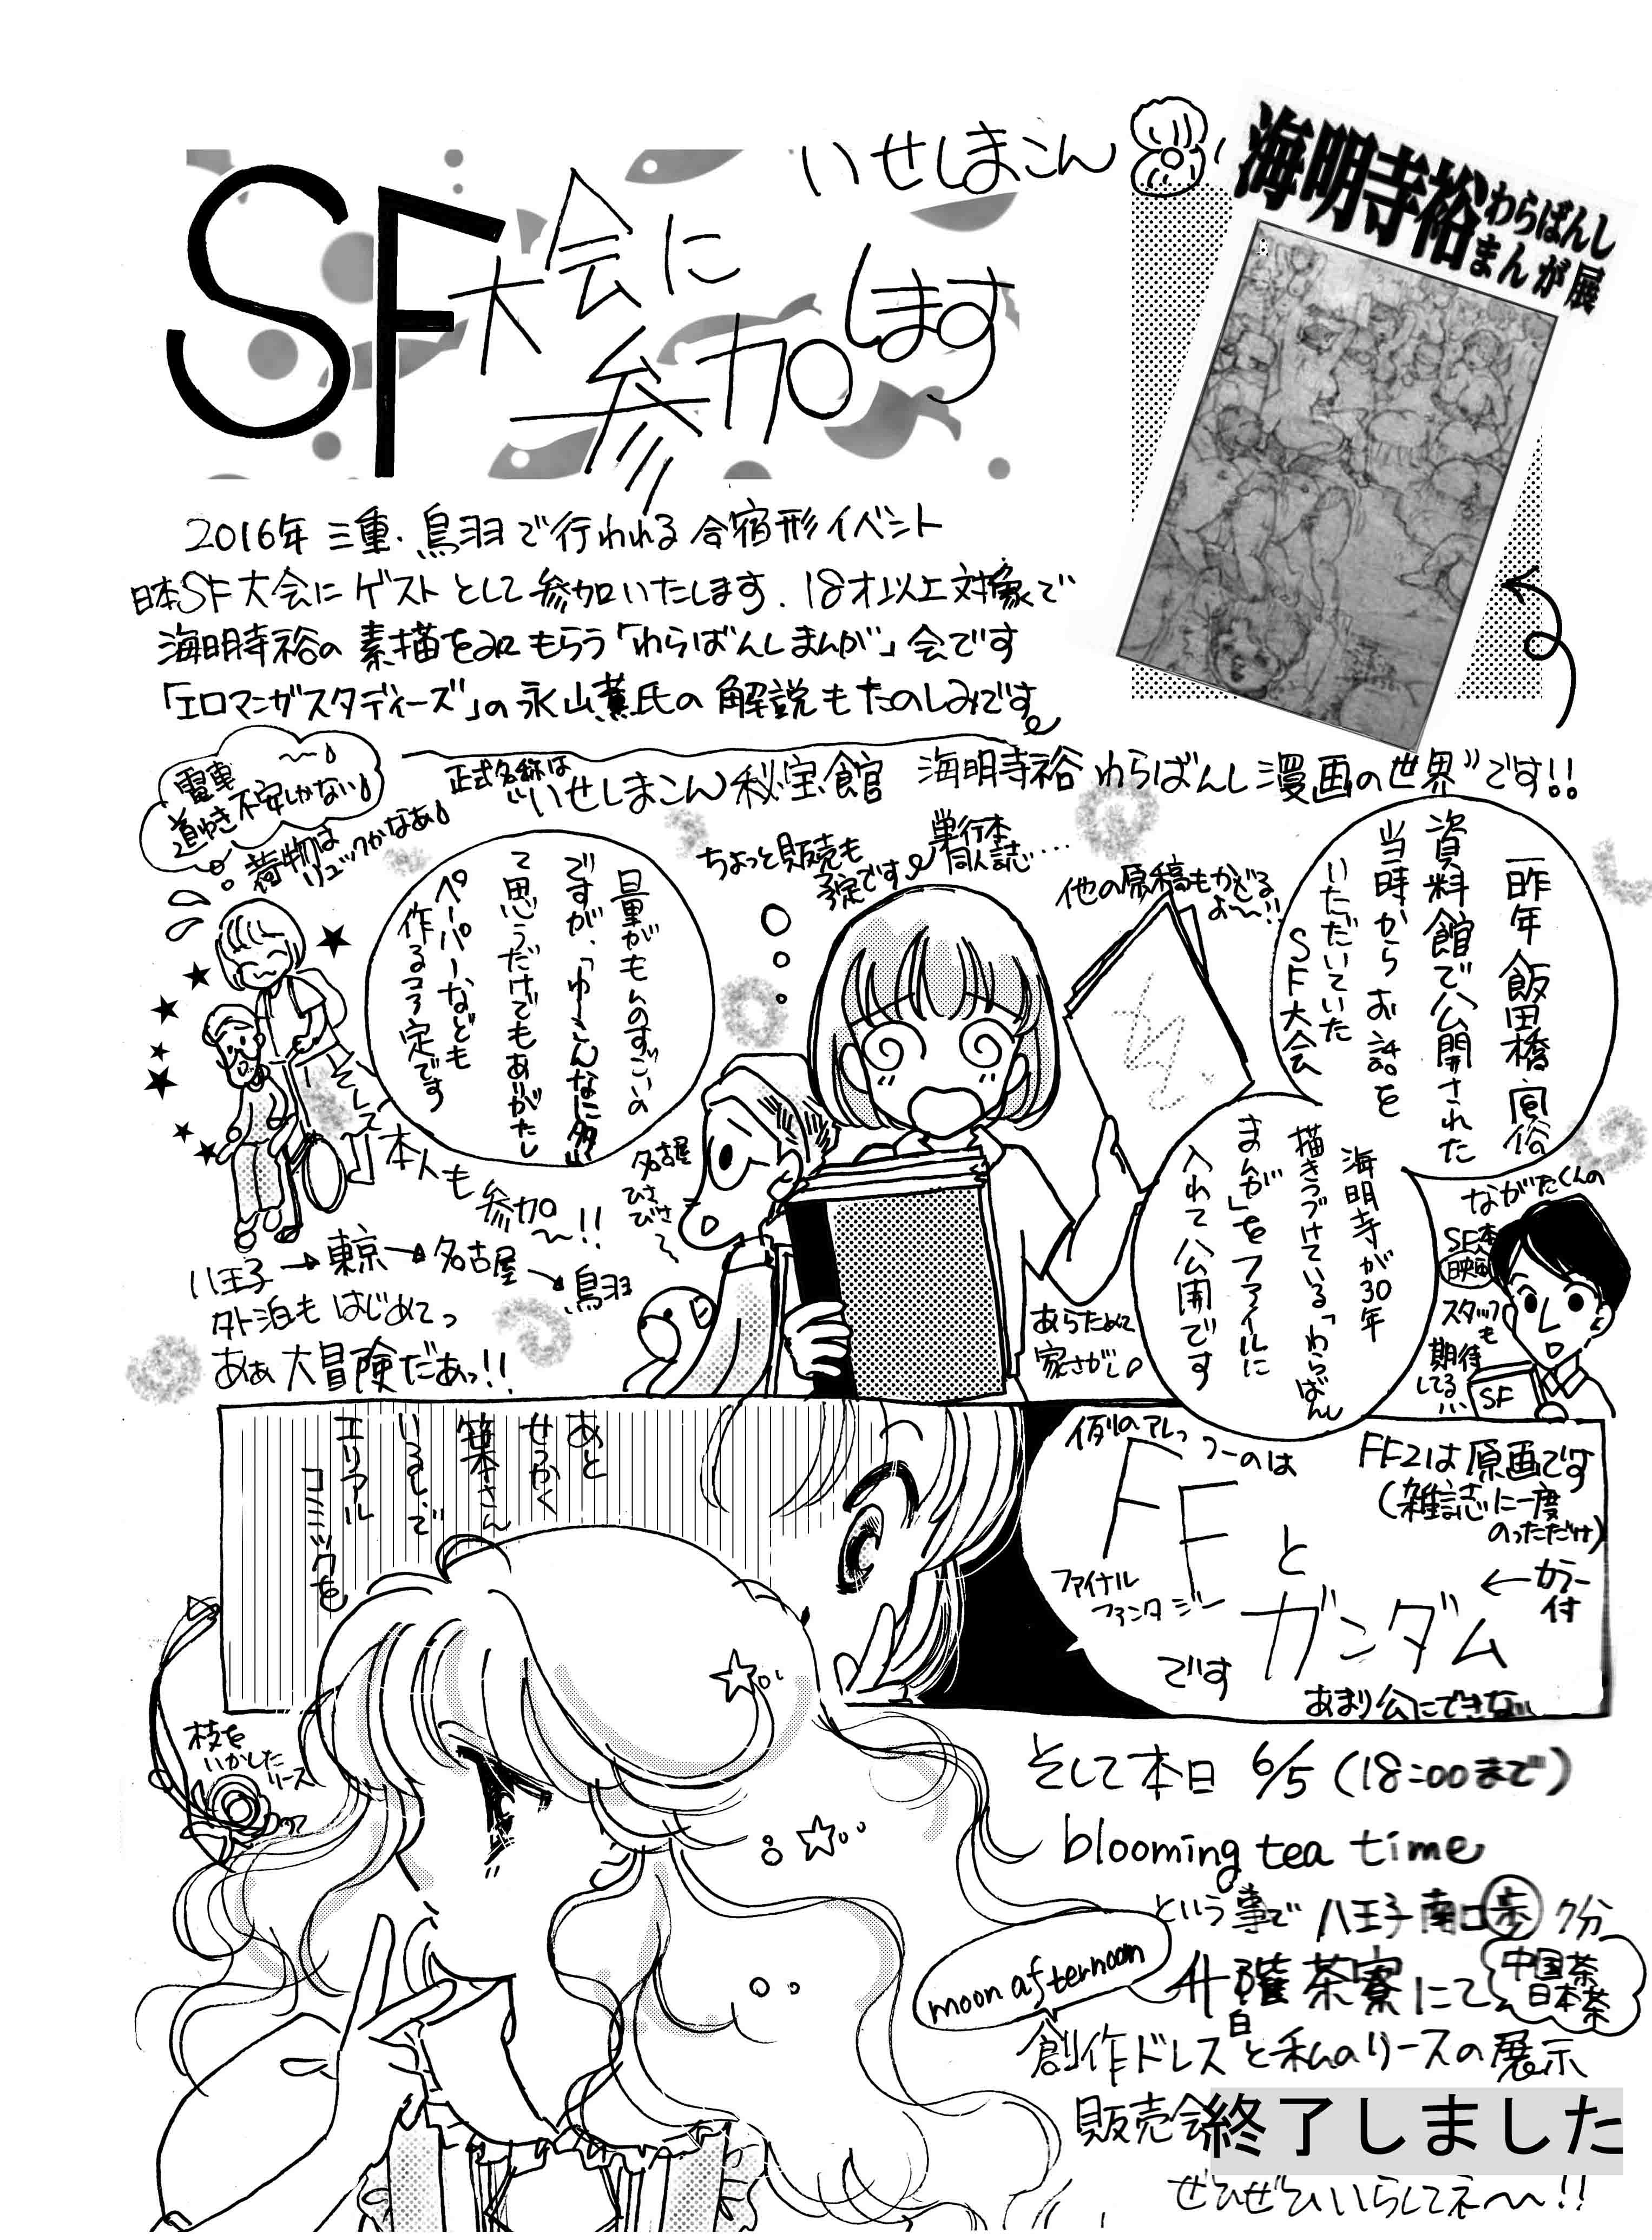 いせしまこん
SF大会に
参加します
海明寺裕わらばんし
まんが展
2016年 三重・鳥羽で行われる合宿形イベント
日本SF大会にゲストとして参加いたします。18才以上対象で
海明寺裕の素描をみてもらう「わらばんしまんが」会です
「エロマンガスタディーズ」の永山薫氏の解説もたのしみです
正式名称は
"いせしまこん秘宝館 海明寺裕 わらばんし漫画の世界"です!!
電車
道ゆき不安しかない
荷物は
リュックかなあ
一昨年飯田橋風俗
資料館で公開された
当時からお話を
いただいていた
SF大会
他の原稿もかざる
よ〜!!
単行本
同人誌....
ちょっと販売も
予定です
海明寺が30年
描きつづけている「わらばんし
まんが」をファイルに
入れて公開です
量がものすごいの
ですが、「ゆーこんなに多い
て思うだけでもありがたし
ペーパーなども
作る予定です
名古屋
ひさ
びさ〜
そして
本人も参加
〜!!
八王子→東京→名古屋→鳥羽
外泊もはじめてっ
あぁ大冒険だあっ!!
あらためて
家さがし
ながたくんの
SF本
映画
スタッフ
も
期待
してる!!
SF
例のアレっつーのは
FFと
ファイナル
ファンタジー
ガンダム
です
FF2は原画です
(雑誌に一度
のっただけ)
←カラー
付
あまり公にできない
あと
せっかく
笹本さん
いるしで
エリアル
コミックを
枝を
いかした
リース
そして本日 6/5 (18:00まで)
blooming tea time
という事で 八王子南口歩7分
茶寮にて
中国茶
日本茶
moon afternoon
創作ドレスと私のリースの展示
販売会
終了しました
ぜひぜひいらしてネ〜!!